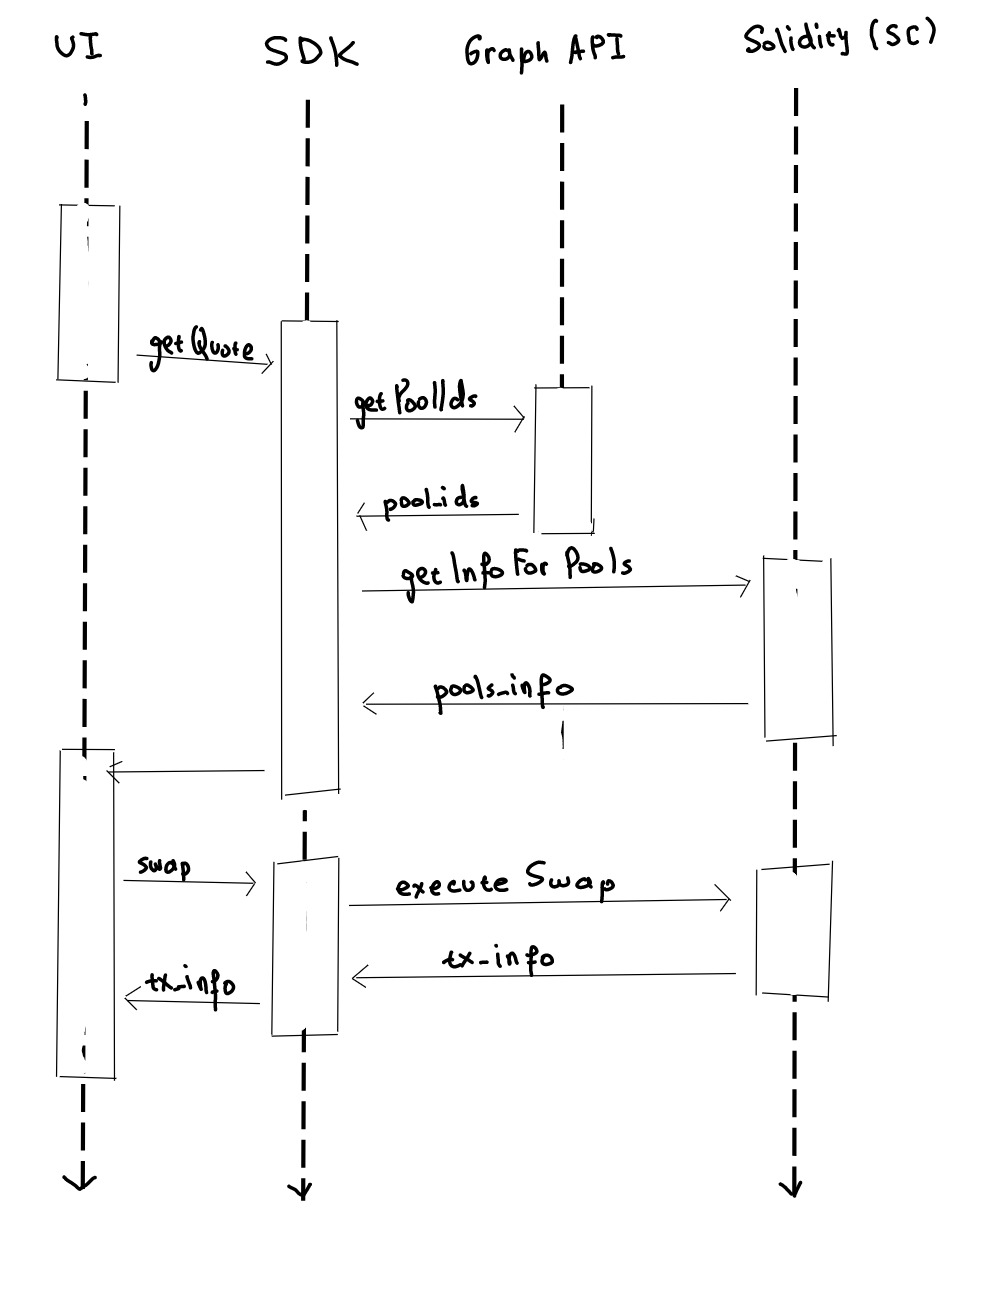 UI
SDK
Graph API
Solidity (SC)
getQuote
get PoolIds
pool_ids
get Info For Pools
pools_info
swap
execute Swap
tx_info
tx_info